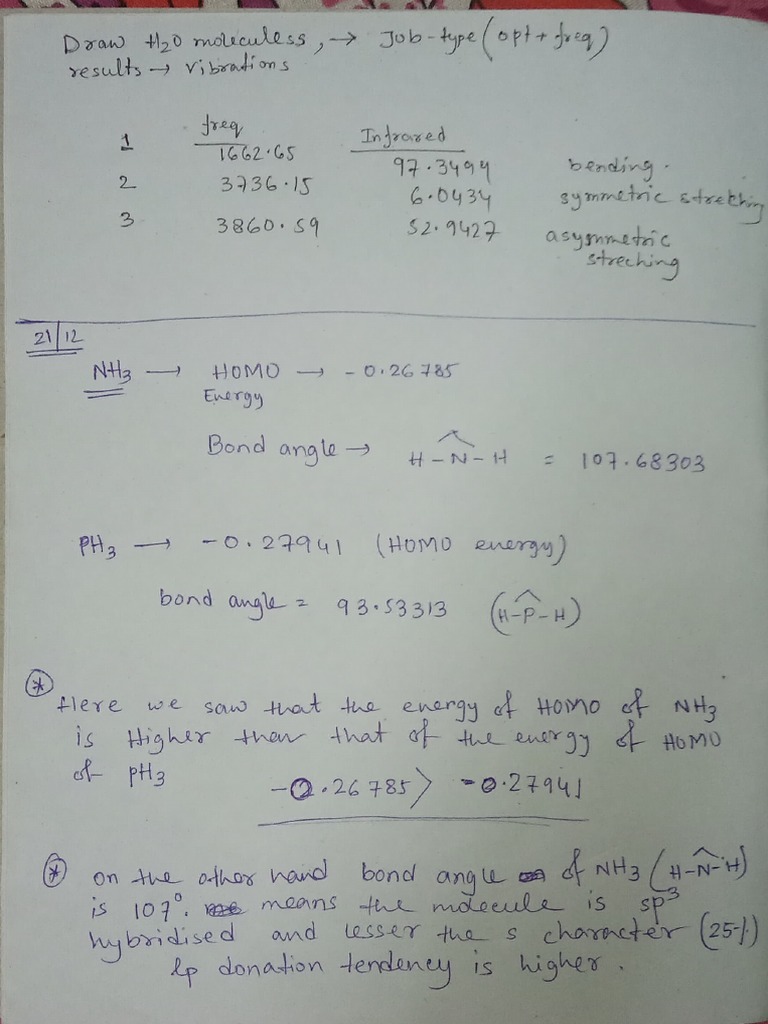 Draw H2O moleculess, → Job-type (opt + freq)
results → vibrations
freq Infrared
1 1662.65 97.3494 bending.
2 3736.15 6.0434 symmetric stretching
3 3860.59 52.9427 asymmetric
streching
21/12
NH3 → HOMO → -0.26785
Energy
Bond angle → H-N-H = 107.68303
PH3 → -0.27941 (HOMO energy)
bond angle = 93.53313 (H-P-H)
* Here we saw that the energy of HOMO of NH3
is Higher than that of the energy of HOMO
of PH3 -0.26785 > -0.27941
* on the other hand bond angle of NH3 (H-N-H)
is 107°. means the molecule is sp3
hybridised and lesser the s character (25%)
lp donation tendency is higher.